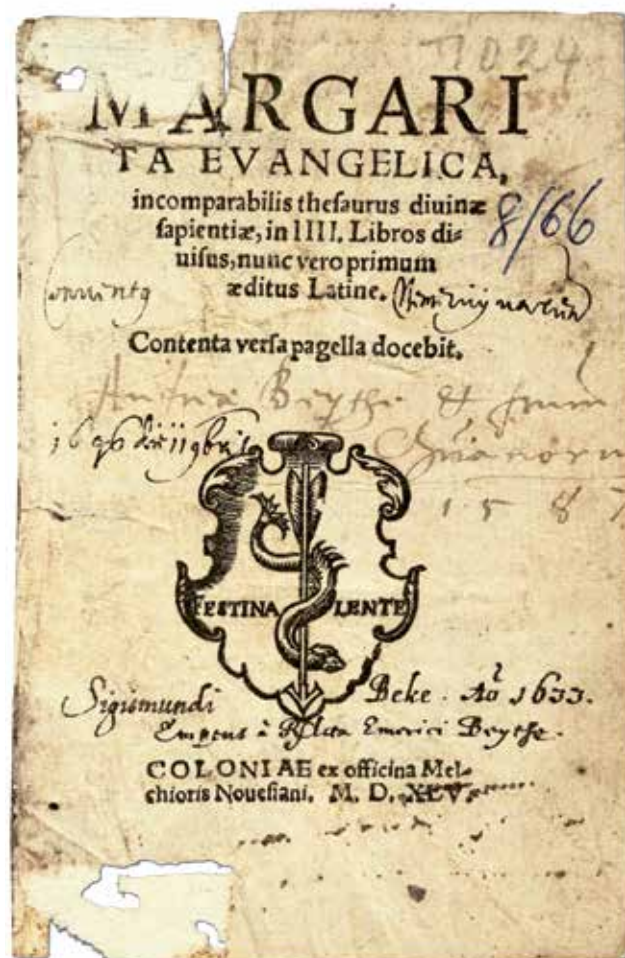 1024
MARGARI
TA EVANGELICA,
incomparabilis theſaurus diuinæ
ſapientiæ, in IIII. Libros di-
uiſus, nunc vero primum
æditus Latine.
8/66
Contenta verſa pagella docebit.
Andreæ Beythe &
1587
FESTINA LENTE
Sigismundi Beke. Ao 1633.
Emptus à Relicta Emerici Beythe.
COLONIAE ex officina Mel-
chioris Nouesiani. M. D. XLV.